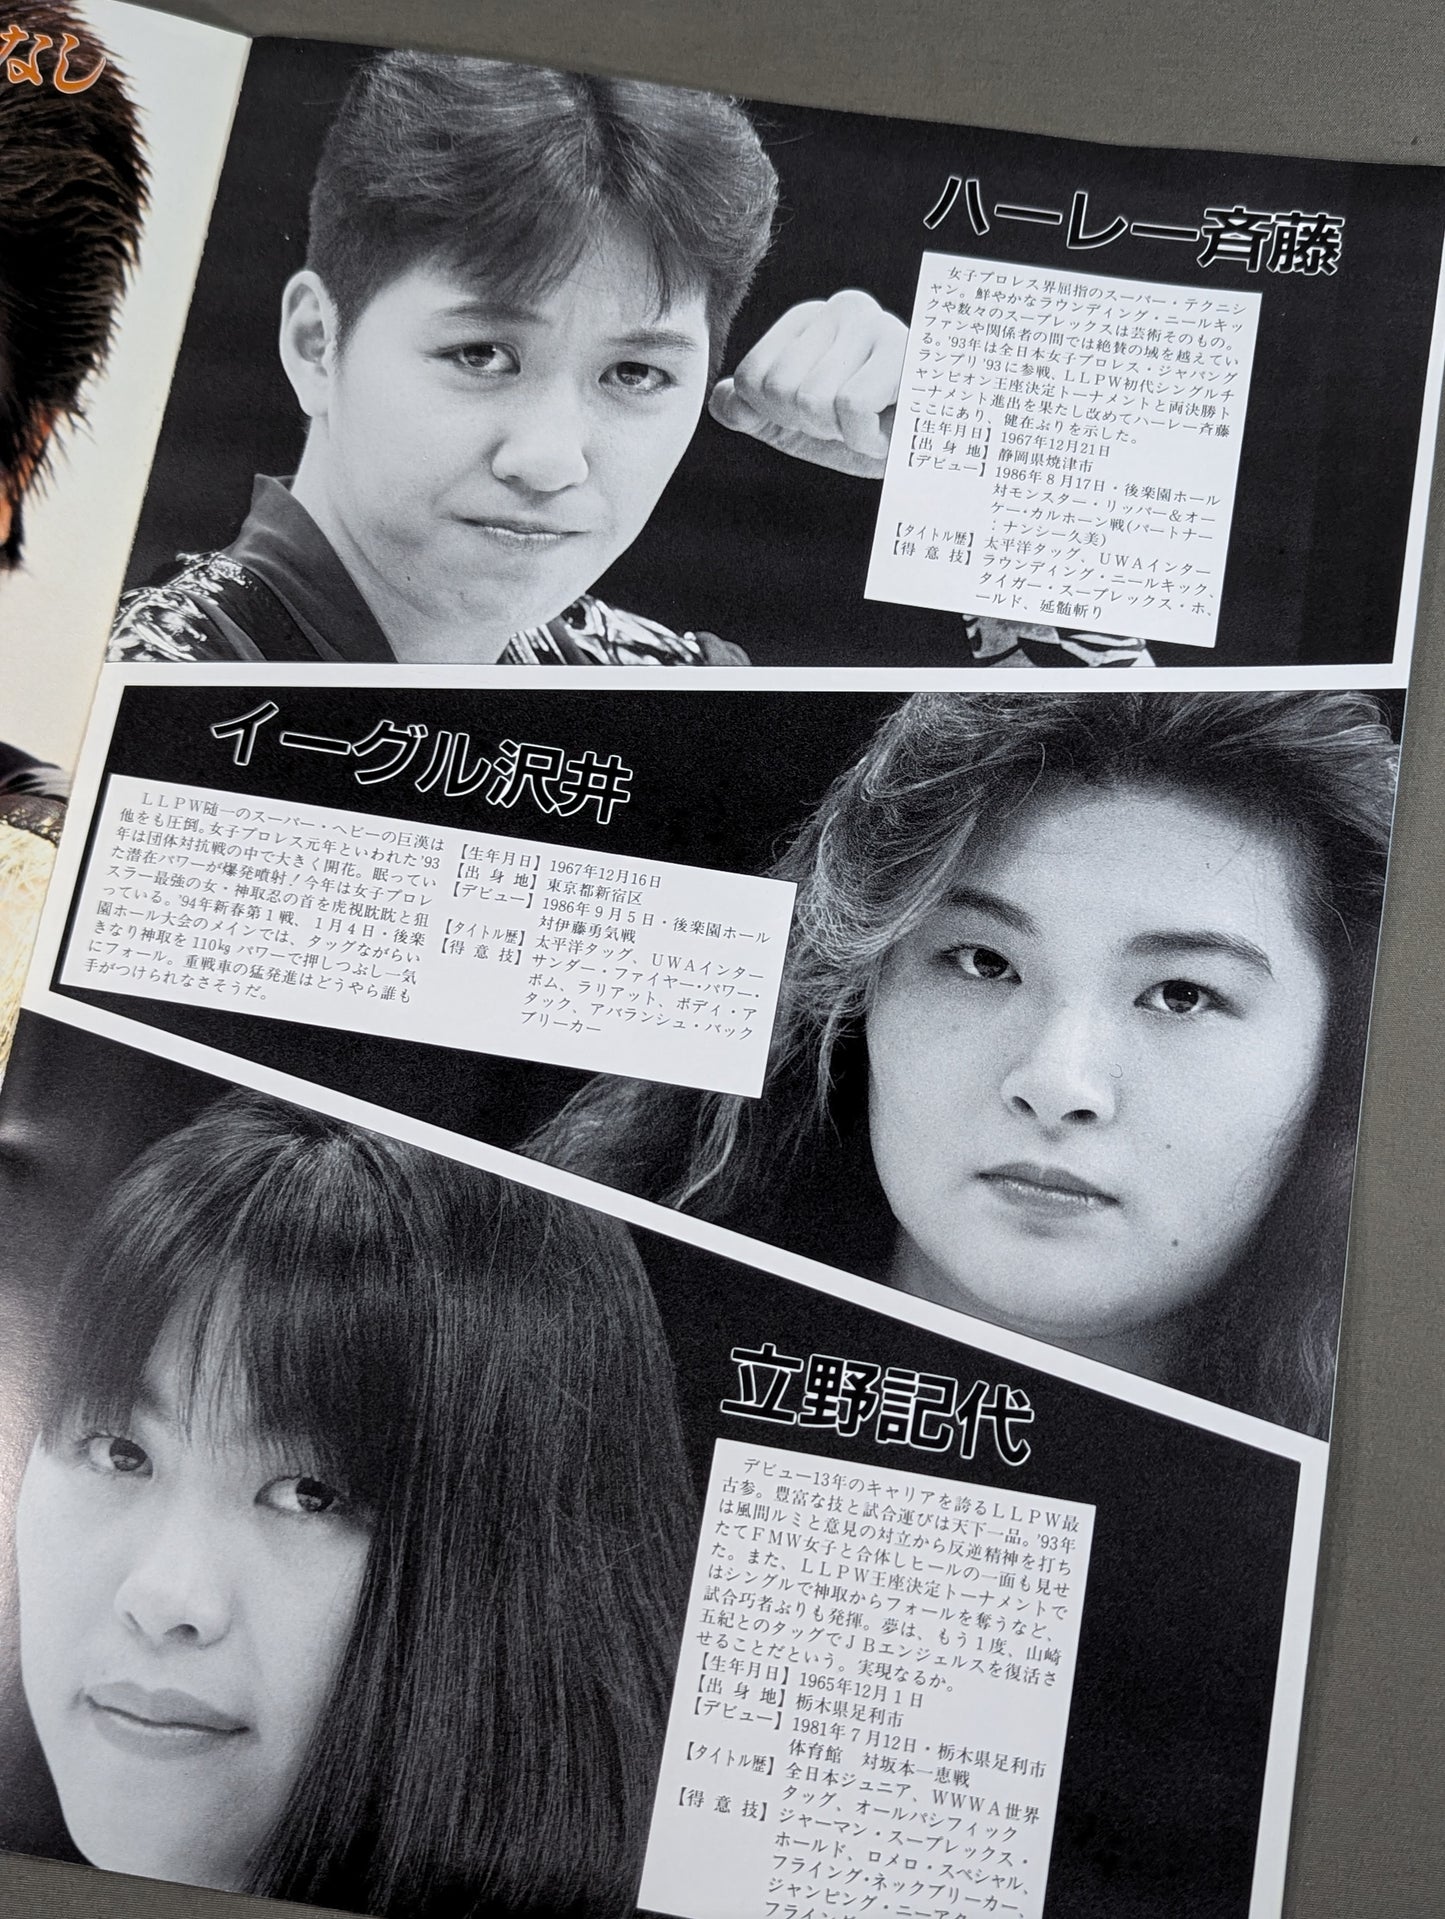 なし
ハーレー斉藤
女子プロレス界屈指のスーパー・テクニシ
ャン。鮮やかなラウンディング・ニールキッ
クや数々のスープレックスは芸術そのもの。
ファンや関係者の間では絶賛の域を越えてい
る。'93年は全日本女子プロレス・ジャパング
ランプリ'93に参戦、LLPW初代シングルチ
ャンピオン王座決定トーナメントと両決勝ト
ーナメント進出を果たし改めてハーレー斉藤
ここにあり、健在ぶりを示した。
【生年月日】1967年12月21日
【出身地】静岡県焼津市
【デビュー】1986年8月17日・後楽園ホール
対モンスター・リッパー&オー
ケー・カルホーン戦(パートナー
:ナンシー久美)
【タイトル歴】太平洋タッグ、UWAインター
【得意技】ラウンディング・ニールキック、
タイガー・スープレックス・ホ
ールド、延髄斬り
イーグル沢井
LLPW随一のスーパー・ヘビーの巨漢は
他をも圧倒。女子プロレス元年といわれた'93
年は団体対抗戦の中で大きく開花。眠ってい
た潜在パワーが爆発噴射!今年は女子プロレ
スラー最強の女・神取忍の首を虎視眈眈と狙
っている。'94年新春第1戦、1月4日・後楽
園ホール大会のメインでは、タッグながらい
きなり神取を110kgパワーで押しつぶし一気
にフォール。重戦車の猛発進はどうやら誰も
手がつけられなさそうだ。
【生年月日】1967年12月16日
【出身地】東京都新宿区
【デビュー】1986年9月5日・後楽園ホール
対伊藤勇気戦
【タイトル歴】太平洋タッグ、UWAインター
【得意技】サンダー・ファイヤー・パワー・
ボム、ラリアット、ボディ・ア
タック、アバランシュ・バック
ブリーカー
立野記代
デビュー13年のキャリアを誇るLLPW最
古参。豊富な技と試合運びは天下一品。'93年
は風間ルミと意見の対立から反逆精神を打ち
たてFMW女子と合体しヒールの一面も見せ
た。また、LLPW王座決定トーナメントで
はシングルで神取からフォールを奪うなど、
試合巧者ぶりも発揮。夢は、もう1度、山崎
五紀とのタッグでJBエンジェルスを復活さ
せることだという。実現なるか。
【生年月日】1965年12月1日
【出身地】栃木県足利市
【デビュー】1981年7月12日・栃木県足利市
体育館 対坂本一恵戦
【タイトル歴】全日本ジュニア、WWWA世界
タッグ、オールパシフィック
【得意技】ジャーマン・スープレックス・
ホールド、ロメロ・スペシャル、
フライング・ネックブリーカー、
ジャンピング・ニーアタ
フライング